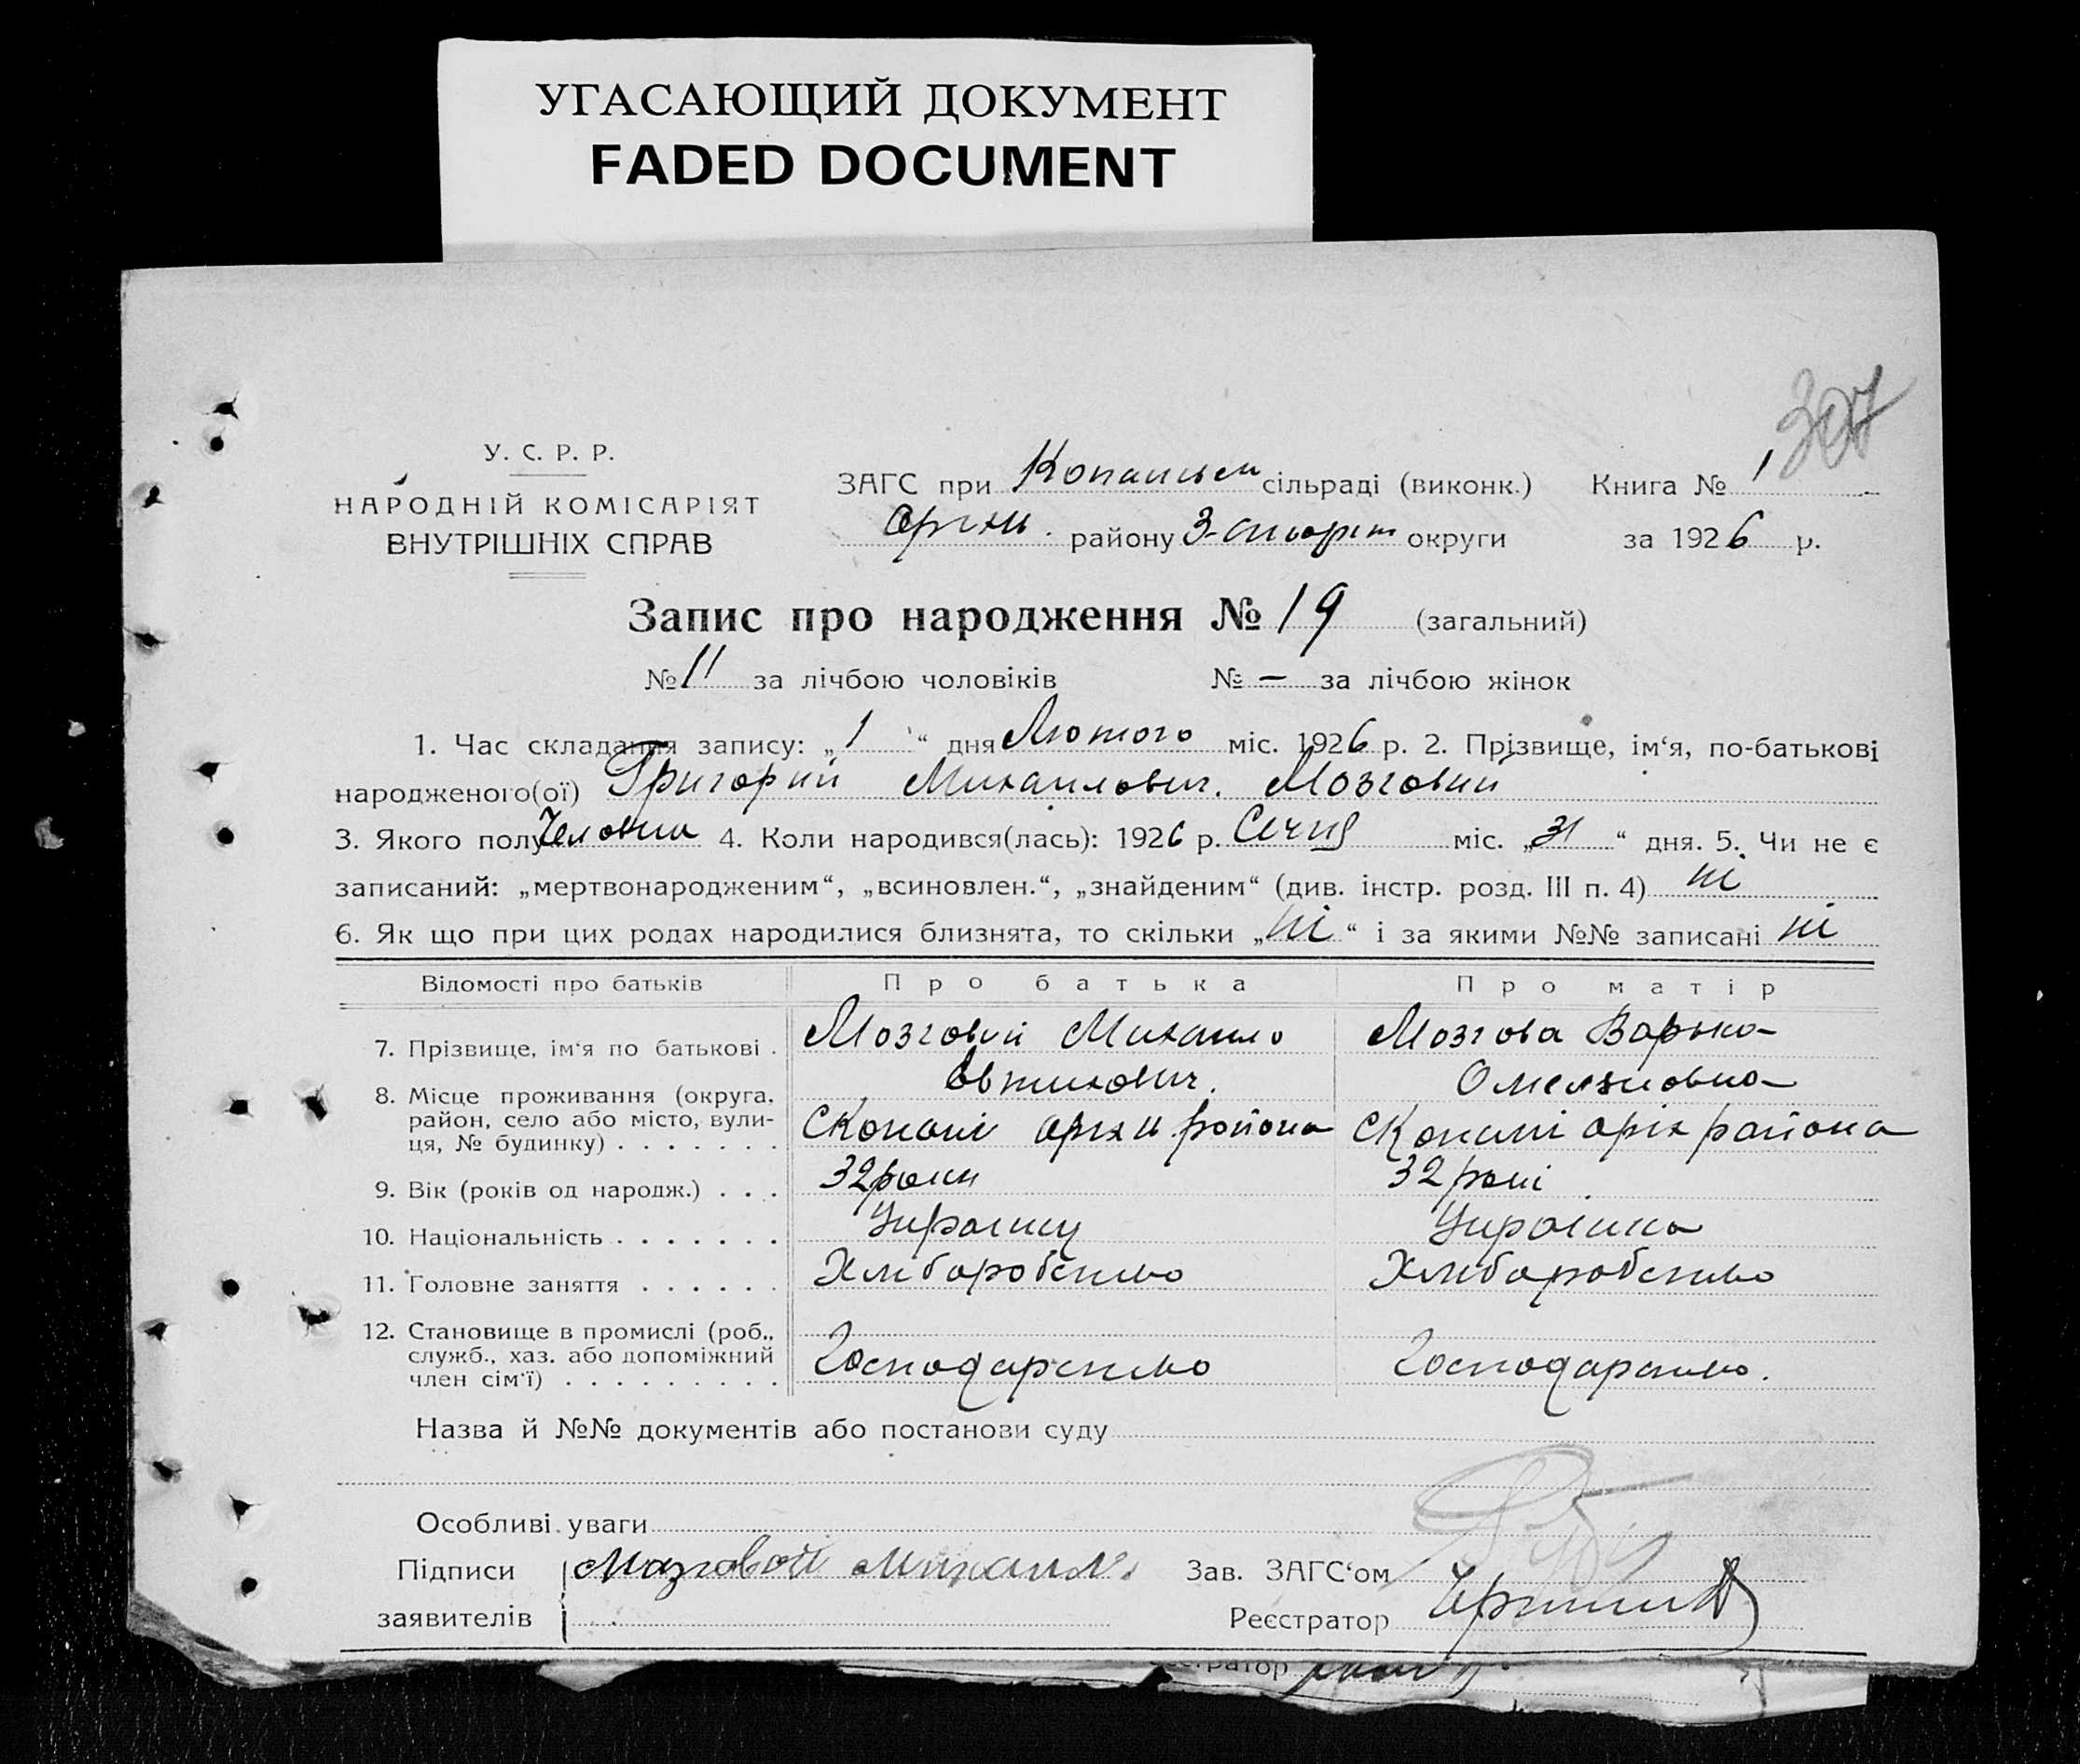 УГАСАЮЩИЙ ДОКУМЕНТ
FADED DOCUMENT
307
У. С. Р. Р.
НАРОДНІЙ КОМІСАРІЯТ
ВНУТРІШНІХ СПРАВ
ЗАГС при сільраді (виконк.) Книга № 1
району округи за 1926 р.
Запис про народження № 19 (загальний)
№ 11 за лічбою чоловіків № — за лічбою жінок
1. Час складання запису: „1“ дня Лютого міс. 1926 р. 2. Прізвище, ім‘я, по-батькові
народженого(ої) Григорий Михаилович. Мозговий
3. Якого полу 4. Коли народився(лась): 1926 р. Січня міс. „31“ дня. 5. Чи не є
записаний: „мертвонародженим“, „всиновлен.“, „знайденим“ (див. інстр. розд. III п. 4) ні
6. Як що при цих родах народилися близнята, то скільки „ні“ і за якими №№ записані ні
Відомості про батьків Про батька Про матір
7. Прізвище, ім‘я по батькові . Мозговий Михаило Мозгова Варька
Овтихович. Омеляновна
8. Місце проживання (округа,
район, село або місто, вули-
ця, № будинку) . . . . . . . С Копані оріх района С Копані оріх района
9. Вік (років од народж.) . . . 32 роки 32 рокі
10. Національність . . . . . . . Украінка
11. Головне заняття . . . . . . Хлиборобство Хлиборобство
12. Становище в промислі (роб.,
служб., хаз. або допоміжний
член сім‘ї) . . . . . . . . . Господарство Господарство.
Назва й №№ документів або постанови суду
Особливі уваги
Підписи Мазговой Михаил. Зав. ЗАГС‘ом
заявителів Реєстратор